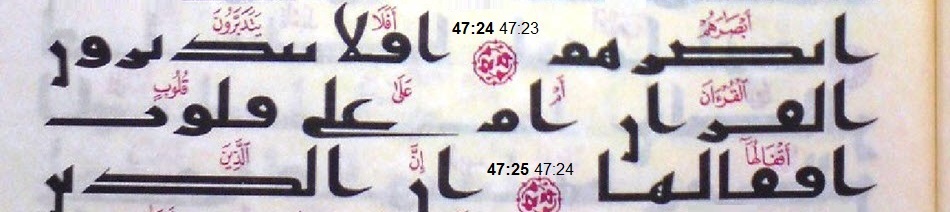 أَبْصَٰرَهُمْ أَفَلَا يَتَدَبَّرُونَ
ابصرهم 47:24 47:23 افلا يتدبرون
ٱلْقُرْءَانَ أَمْ عَلَىٰ قُلُوبٍ
القران ام على قلوب
أَقْفَالُهَآ إِنَّ ٱلَّذِينَ
اقفالها 47:25 47:24 ان الذين